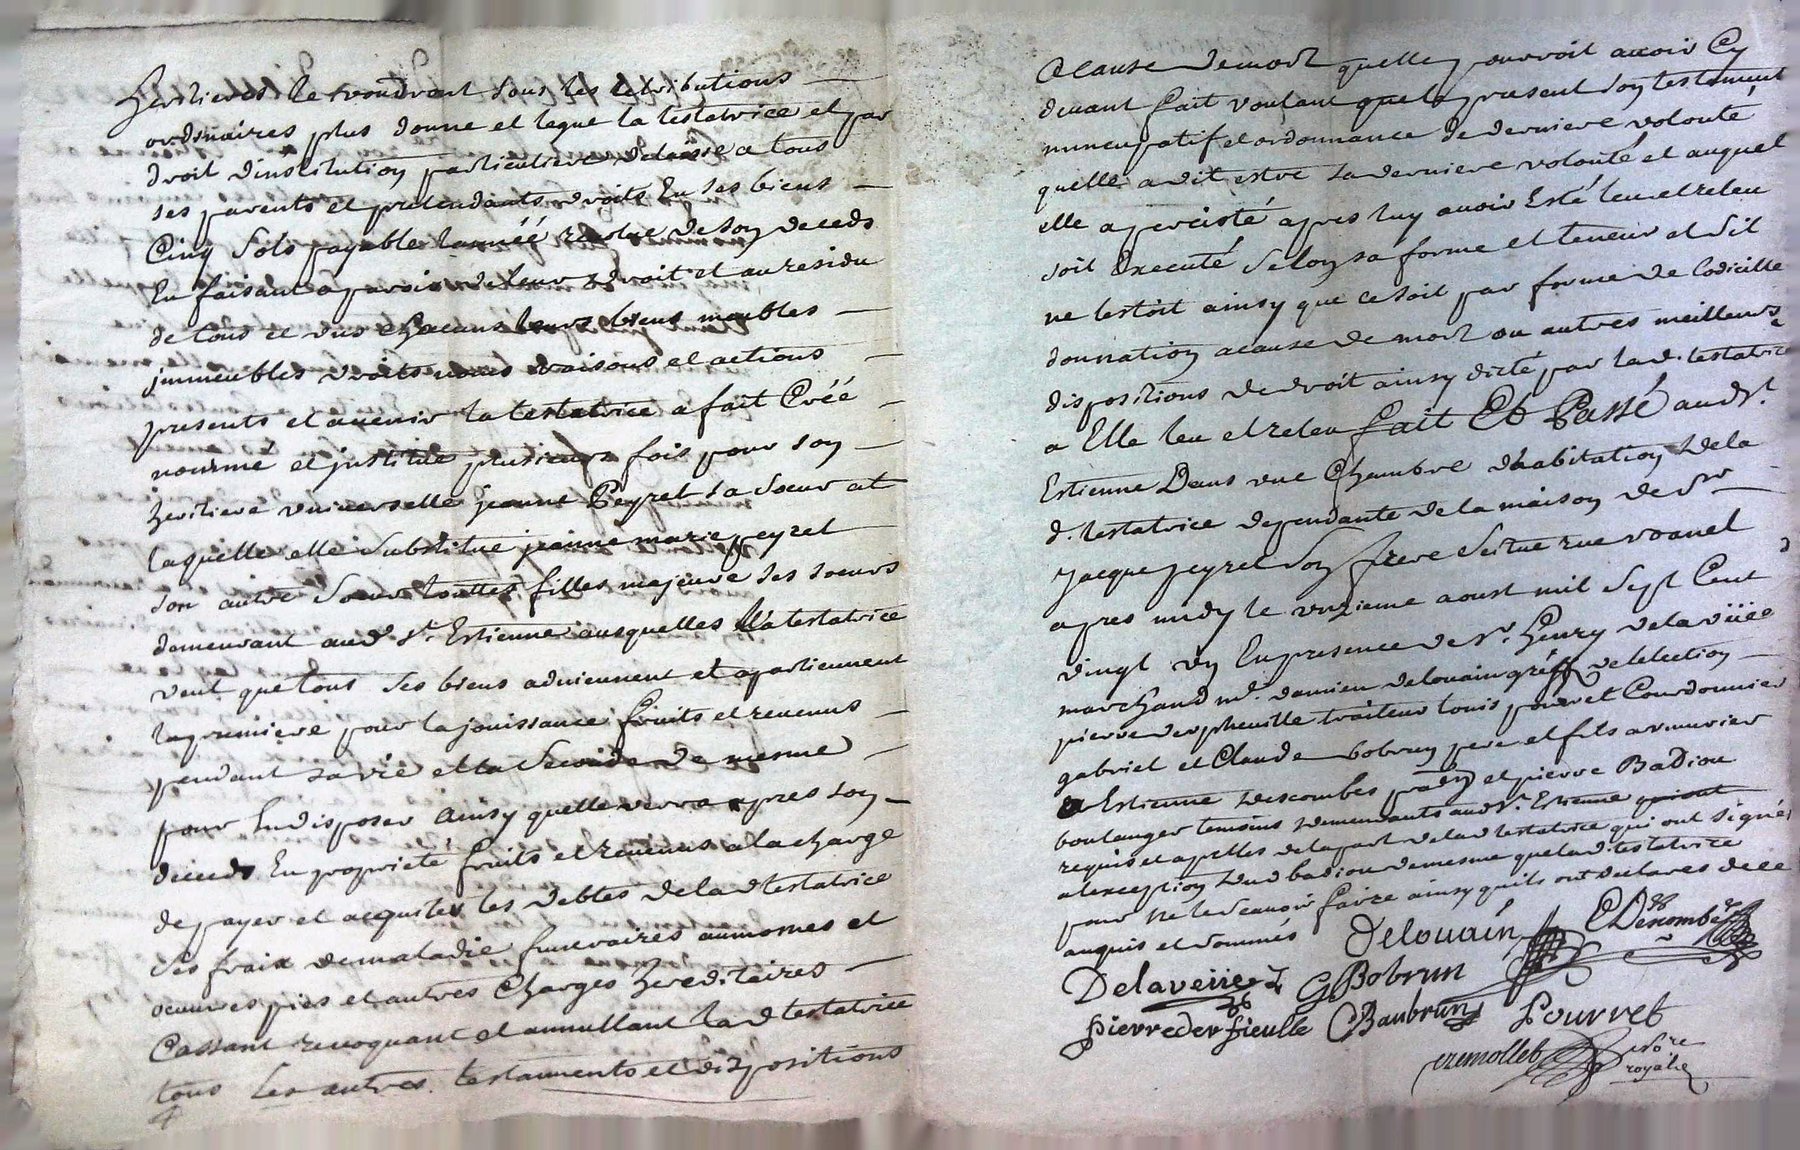 heritieres le voudront sous les retributions
ordinaires plus donne et legue la testatrice et par
droit d'institution particuliere delaisse a tous
ses parents et pretendants droits En ses biens
Cinq sols payable l'année revolue de son deceds
En faisant a parois de leur droit et au residu
de tous et vns chacuns leurs biens meubles
jmmeubles droits noms raisons et actions
presents et avenir la testatrice a fait Créé
nommé et jnstitue plusieurs fois pour son
heritiere vniverselle jeanne Peyret sa soeur at
laquelle elle substitue jeanne marie peyret
son autre soeur touttes filles majeure ses soeurs
demeurant aud. St. Estienne ausquelles la testatrice
veut que tous ses biens adviennent et apartiennent
la premiere pour la jouissance fruits et revenus
pendant sa vie et la seconde de mesme
pour En disposer ainsy quelle verra apres son
deceds En proprieté fruits et revenus a la charge
de payer et acquiter les debtes de lad testatrice
ses fraix de maladie funeraires aumones et
oeuvres pies et autres Charges hereditaires
Cassant revoquant et annullant lad testatrice
tous les autres testaments et dispositions
a Cause de mort quelle pourroit avoir Cy
devant fait voulant que le present son testament
nuncupatif et ordonnance de derniere volonté
quelle a dit estre sa derniere volonté et auquel
elle a percisté apres luy avoir Esté leu et releu
soit Executé selon sa forme et teneur et sil
ne lestoit ainsy que ce soit par forme de Codicille
donnation a cause de mort ou autres meilleurs
dispositions de droit ainsy dicté par lad. testatrice
a Elle leu et releu fait Et Passé aud St.
Estienne Dans vne Chambre d'habitation de la
d. testatrice dependante de la maison de sr
jacque peyret son frere scitue rue roanel
apres midy le vnzieme aoust mil sept Cent
vingt vn En presence de sr. henry delaviïee
marchand md. damien delouain greff de lelection
pierre derpheuille traiteur louis pouvret Courdonnier
gabriel et Claude bobrun pere et fils armurier
Estienne descombes pra en et pierre Badiou
boulanger temoins demeurants aud St. Estienne qui ont
requis et apelles de la part de lad testatrice qui ont signé
a lexception dud badiou de mesme que lad. testatrice
pour ne le scavoir faire ainsy quils ont declares de ce
enquis et sommés Delouain EDescombes
Delaveiie GBobrun
pierrederfieulle CBaubrun Pourret
cremollet nore
royal